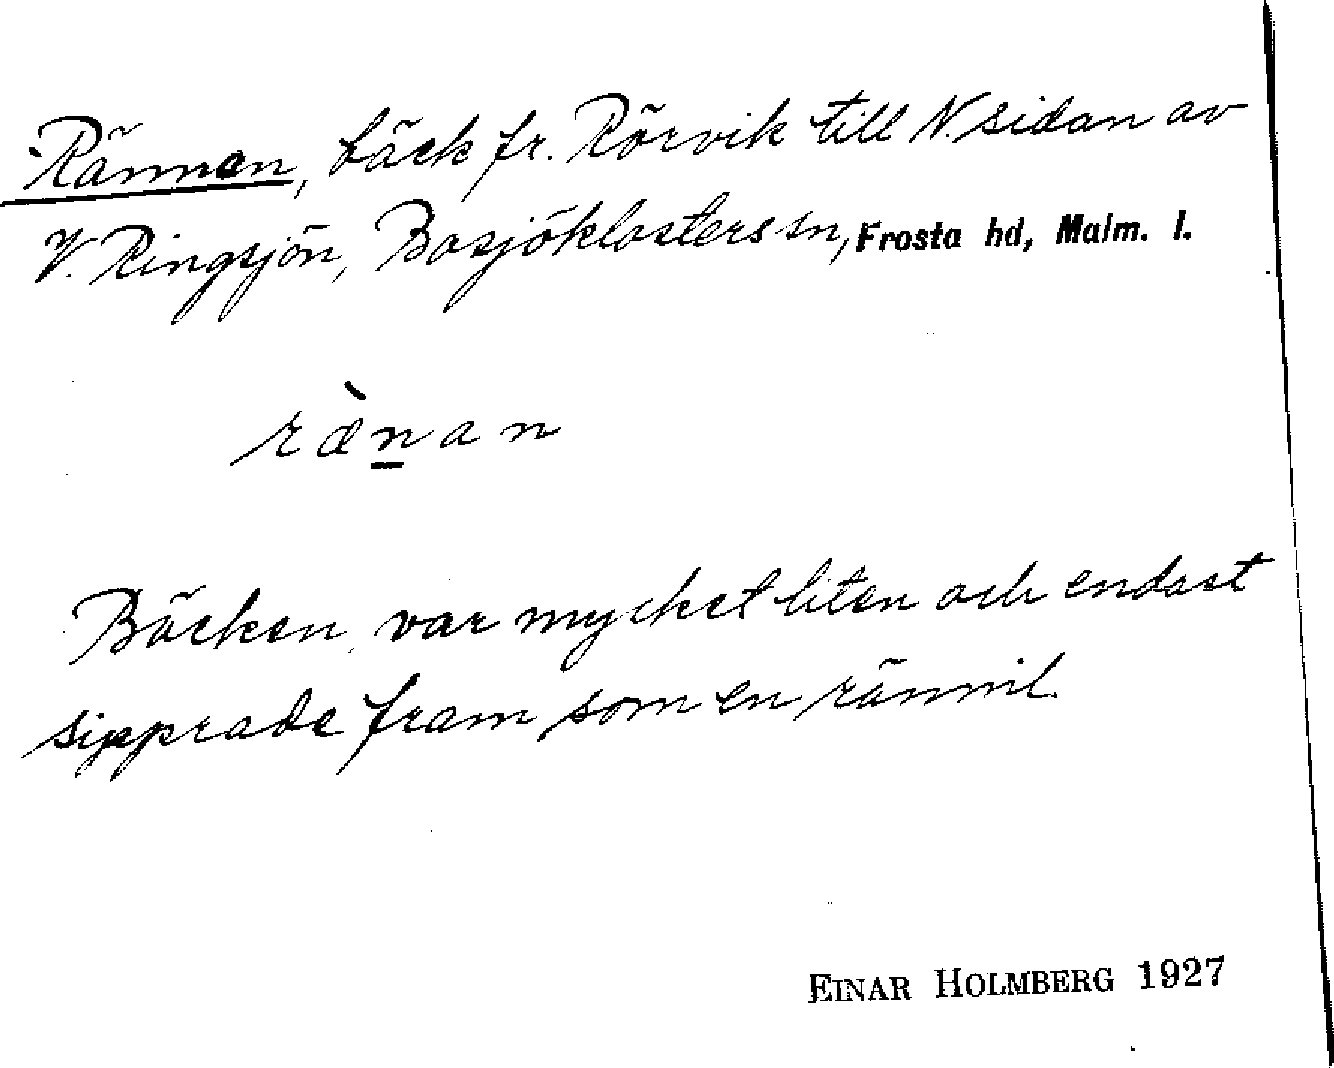 Rännan, bäck fr. Rörvik till N. sidan av
V. Ringsjön, Bosjöklosters sn, Frosta hd, Malm. l.
ræ̀n̲an
Bäcken var mycket liten och endast
sipprade fram som en rännil.
EINAR HOLMBERG 1927